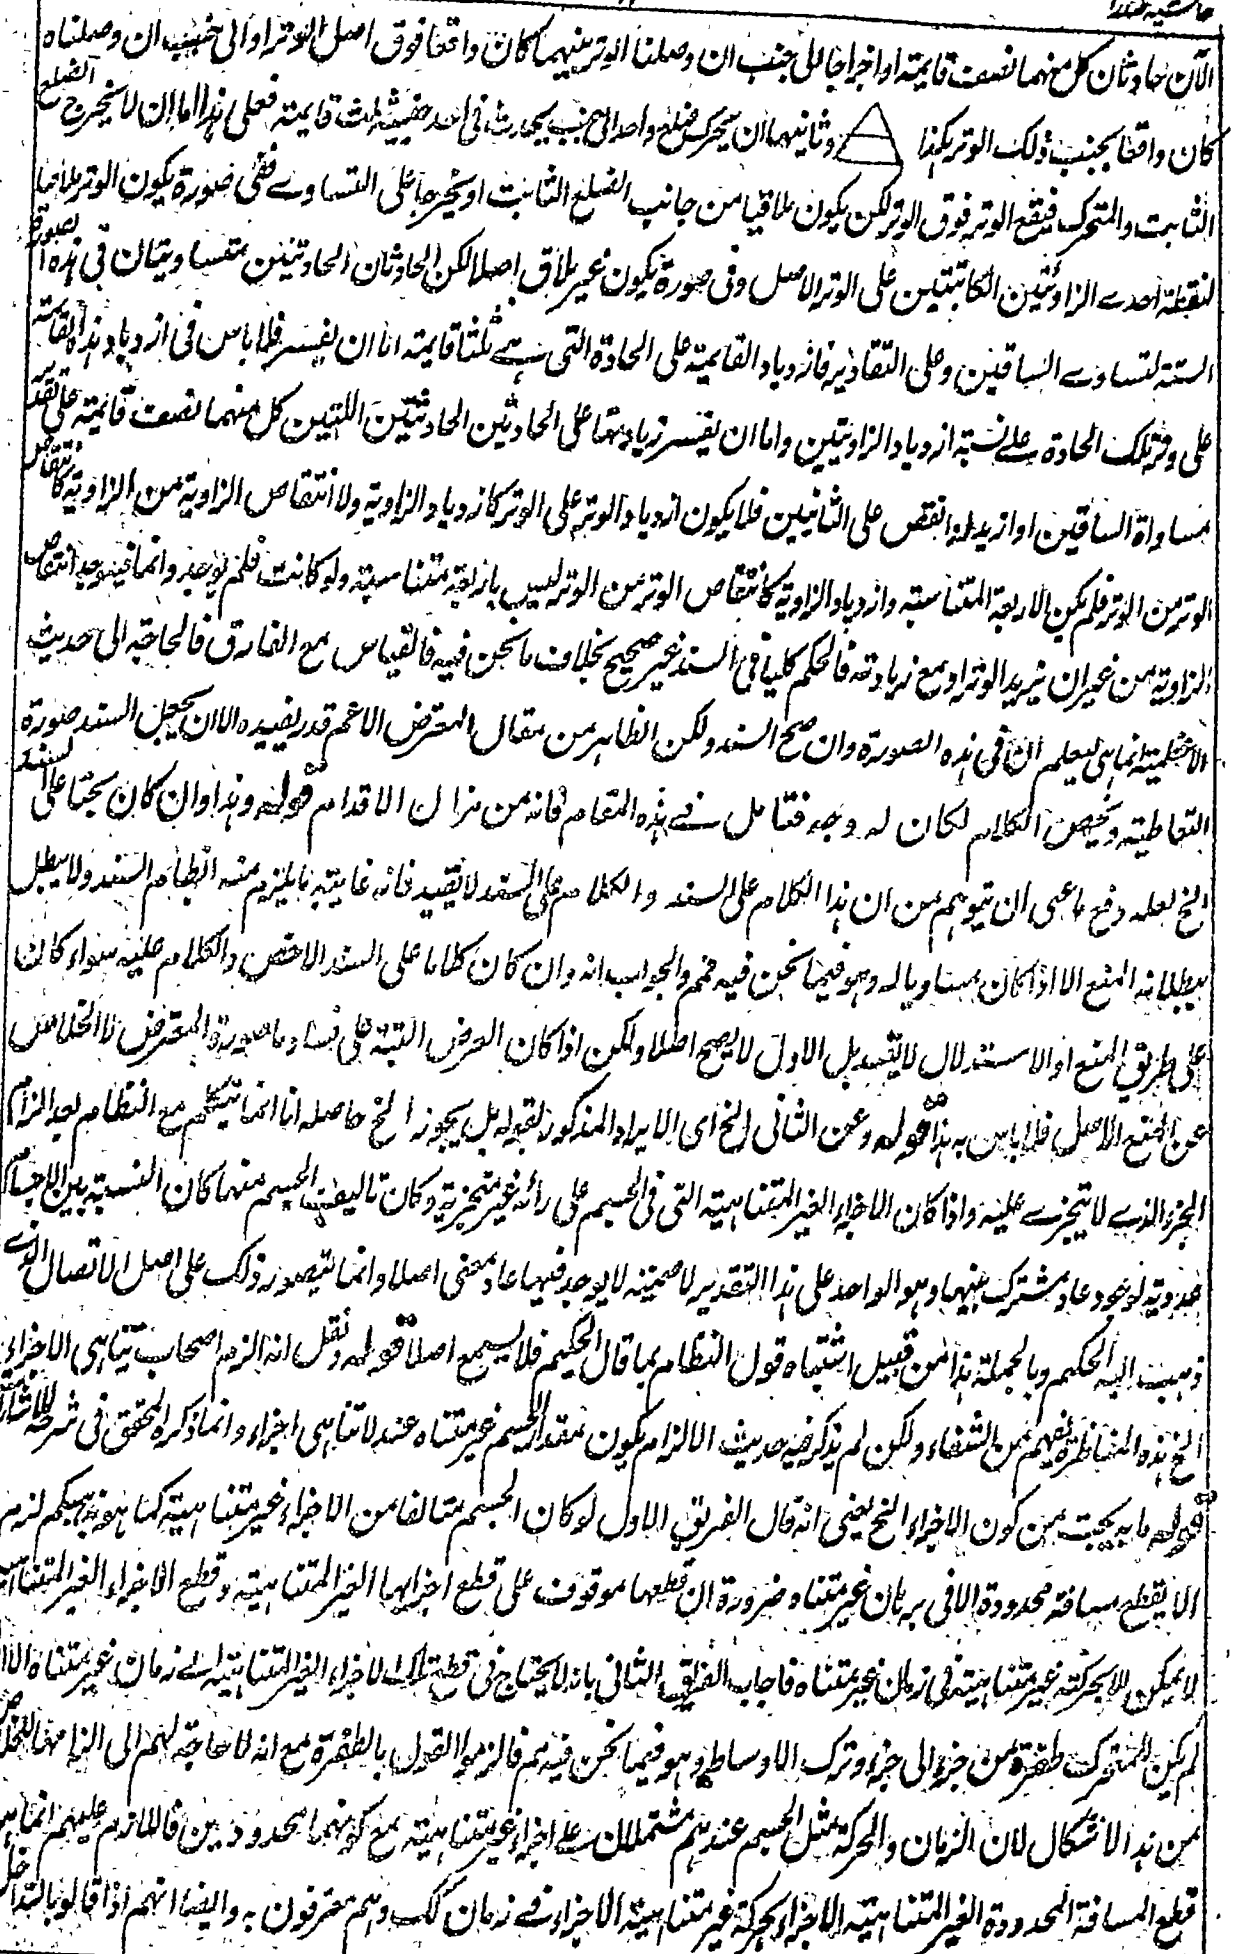 حاشیہ صدرا
الآن حادثان كل منهما نصف قائمة او اخراجا الى جنب ان وصلنا الوتر بينهما كان واقعا فوق اصل الوتر او الى جنبين ان وصلناه
كان واقعا بجنب ذلك الوتر هكذا وثانيهما ان يتحرك ضلع واحد الى جنب يحدث في احد جنبيه ثلث قائمة فعلى هذا اما ان لا يخرج الضلع
الثابت والمتحرك فيقع الوتر فوق الوتر لكن يكون ملاقيا من جانب الضلع الثابت او يخرجا على التساوے ففى صورة يكون الوتر ملاقيا
لنقطة احدے الزاويتين الكائنتين على الوتر الاصل وفى صورة يكون غير ملاق اصلا لكن الحادثان الحادتين متساويتان فى هذه الصورة
الستة لتساوے الساقين وعلى التقادير فازدياد القائمة على الحادة التى هے ثلثا قائمة اما ان يفسر فلا باس فى ازدياد هذه القائمة
على وتر تلك الحادة على نسبة ازدياد الزاويتين واما ان يفسر زيادتها على الحادثين الحادثتين اللتين كل منهما نصف قائمة على تقدير
مساواة الساقين او ازيد او انقص على الثانيين فلا يكون ازدياد الوتر على الوتر كازدياد الزاوية ولا انتقاص الزاوية من الزاوية كانتقاص
الوتر من الوتر فلم يكن الاربعة المتناسبة وازدياد الزاوية كانتقاص الوتر من الوتر ليس باربعة متناسبة ولو كانت فلم يوجد وانما فيه يوجد انتقاص
الزاوية من غير ان يزيد الوتر او مع زيادته فالحكم كليا فى السند غير صحيح بخلاف ما نحن فيه فالقياس مع الفارق فالحاجة الى حديث
الاعظمية انما هى ليعلم ان فى هذه الصورة وان صح السند ولكن الظاهر من مقال المعترض الاعم قدر يفيده الا ان يجعل السند صورة
التعاطية ويخص الكلام لكان له وجه فتامل فى هذه المقام فانه من مزال الاقدام قوله وهذا وان كان بحثا على السند
الخ لعله دفع ما عسى ان يتوهم من ان هذا الكلام على السند والكلام على السند لا يفيد فانه غاية ما يلزم منه ابطال السند ولا يبطل
ببطلانه المنع الا اذا كان مساويا له وهو فيما نحن فيه مم والجواب انه وان كان كلاما على السند الاخص والكلام عليه سواء كان
على طريق المنع او الاستدلال لا يفيد بل الاول لا يصح اصلا ولكن اذا كان الغرض التنبيه على فساد ما صوره المعترض لا الخلاص
عن المنع الاصل فلا باس به هذا قوله وعن الثانى الخ اى الايراد المذكور بقوله بل يجوز الخ حاصله انا انما نتكلم مع النظام بعد الزام
الجزء الذے لا يتجزے عليه واذا كان الاجزاء الغير المتناهية التى فى الجسم على رائه غير متجزية وكان تاليف الجسم منها كان النسبة بين الاجسام
عددية لوجود عاد مشترك بينهما وهو الواحد على هذا التقدير لا صمية لا يوجد فيها عاد بمعنى اصلا وانما يتصور ذلك على اصل الاتصال الذے
ذهب اليه الحكيم وبالجملة هذا من قبيل اشتباه قول النظام بما قال الحكيم فلا يسمع اصلا قوله ونقل انه الزم اصحاب تناهى الاجزاء
الخ هذه المناظرة يفهم من الشفاء ولكن لم يذكر فيه حديث الالزام بكون مقدار الجسم غير متناه عند لاتناهى اجزاء وانما ذكره المحقق فى شرحه للاشارات
قوله ما به يجب من كون الاجزاء الخ يعنى انه قال الفريق الاول لو كان الجسم متالفا من الاجزاء غير متناهية كما هو مذهبكم لزم
الا يقطع مسافة محدودة الا فى زمان غير متناه ضرورة ان قطعها موقوف على قطع اجزائها الغير المتناهية وقطع الاجزاء الغير المتناهية
لا يمكن الا بحركة غير متناهية فى زمان غير متناه فاجاب الفريق الثانى بانه لا يحتاج فى قطع تلك الاجزاء الغير المتناهية الے زمان غير متناه الا اذا
لم يكن للمتحرك طفرة من جزء الى جزء وترك الاوساط وهو فيما نحن فيه مم فالزموا القول بالطفرة مع انه لا حاجة لهم الى التزامها للخلاص
من هذا الاشكال لان الزمان والحركة مثل الجسم عندهم مشتملان على اجزاء غير متناهية مع كونهما محدودين فاللازم عليهم انما هو
قطع المسافة المحدودة الغير المتناهية الاجزاء بحركة غير متناهية الاجزاء فے زمان كك وهم معترفون به وايضا انهم اذا قالوا بالتداخل